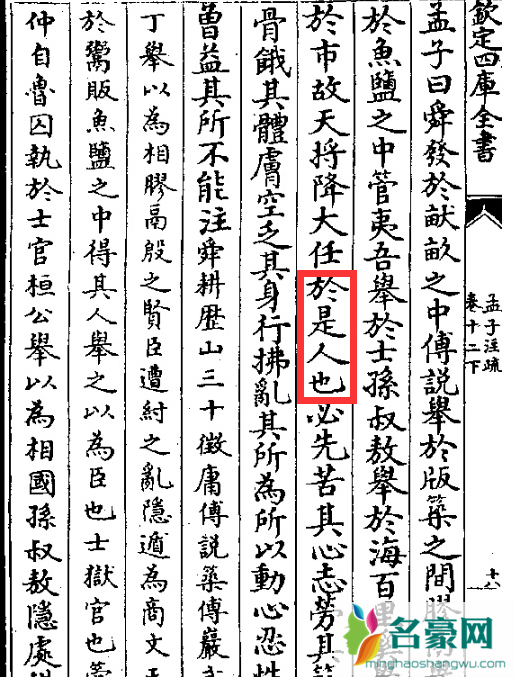 欽定四庫全書
孟子注疏
卷十二下
十八
孟子曰舜發於畎畝之中傅說舉於版築之間膠鬲舉
於魚鹽之中管夷吾舉於士孫叔敖舉於海百里奚
於市故天將降大任於是人也必先苦其心志勞其筋
骨餓其體膚空乏其身行拂亂其所為所以動心忍性
曾益其所不能注舜耕歴山三十徵庸傅說築傅巖武
丁舉以為相膠鬲殷之賢臣遭紂之亂隱遁為商文王
於鬻販魚鹽之中得其人舉之以為臣也士獄官也管
仲自魯囚執於士官桓公舉以為相國孫叔敖隱處
名豪网
minghaoshangwu.com